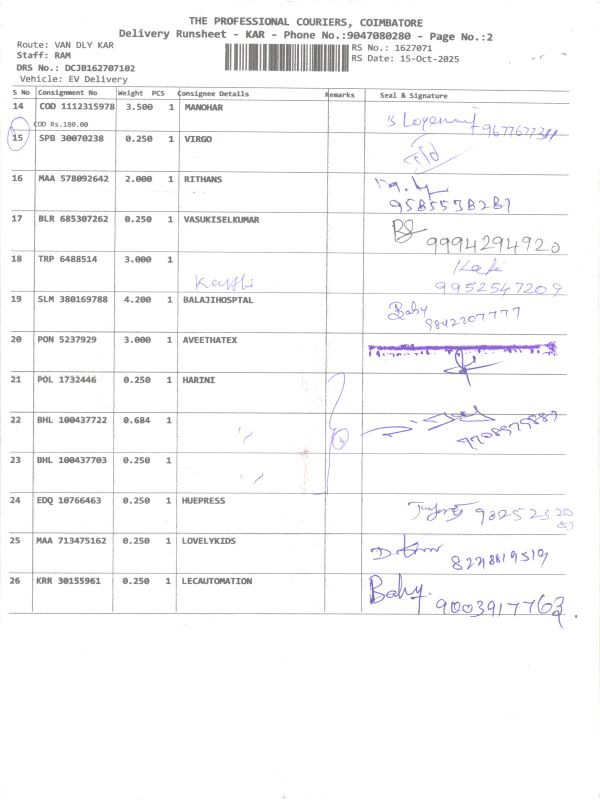 THE PROFESSIONAL COURIERS, COIMBATORE
Delivery Runsheet - KAR - Phone No.:9047080280 - Page No.:2
Route: VAN DLY KAR
Staff: RAM
DRS No.: DCJB162707102
Vehicle: EV Delivery
RS No.: 1627071
RS Date: 15-Oct-2025
S No Consignment No Weight PCS Consignee Details Remarks Seal & Signature
14 COD 1112315978 3.500 1 MANOHAR
COD Rs.180.00
15 SPB 30070238 0.250 1 VIRGO
16 MAA 578092642 2.000 1 RITHANS
9585538287
17 BLR 685307262 0.250 1 VASUKISELKUMAR
9994294920
18 TRP 6488514 3.000 1
9952547209
19 SLM 380169788 4.200 1 BALAJIHOSPTAL Baby
9842207777
20 PON 5237929 3.000 1 AVEETHATEX
21 POL 1732446 0.250 1 HARINI
22 BHL 100437722 0.684 1
23 BHL 100437703 0.250 1
24 EDQ 10766463 0.250 1 HUEPRESS
25 MAA 713475162 0.250 1 LOVELYKIDS
26 KRR 30155961 0.250 1 LECAUTOMATION Baby.
9003917763